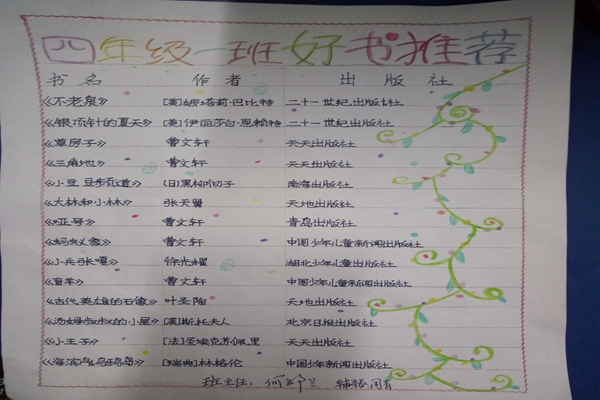 四年级一班好书推荐
书名 作者 出版社
《不老泉》 [美]娜塔莉·巴比特 二十一世纪出版社
《银顶针的夏天》 [美]伊丽莎白·恩赖特 二十一世纪出版社
《草房子》 曹文轩 天天出版社
《三角地》 曹文轩 天天出版社
《小豆豆步页道》 (日)黑柳切子 南海出版社
《大林和小林》 张天翼 天地出版社
《哑号》 曹文轩 青岛出版社
《蚂蚁象》 曹文轩 中国少年儿童新闻出版社
《小兵张嘎》 徐光耀 湖北少年儿童出版社
《盲羊》 曹文轩 中国少年儿童出版社
《古代英雄的石像》 叶圣陶 天地出版社
《汤姆叔叔的小屋》 [美]斯托夫人 北京日报出版社
《小王子》 [法]圣埃克苏佩里 天天出版社
《海滨鸟乌鸦岛》 [瑞典]林格伦 中国少年新闻出版社
班主任: 辅